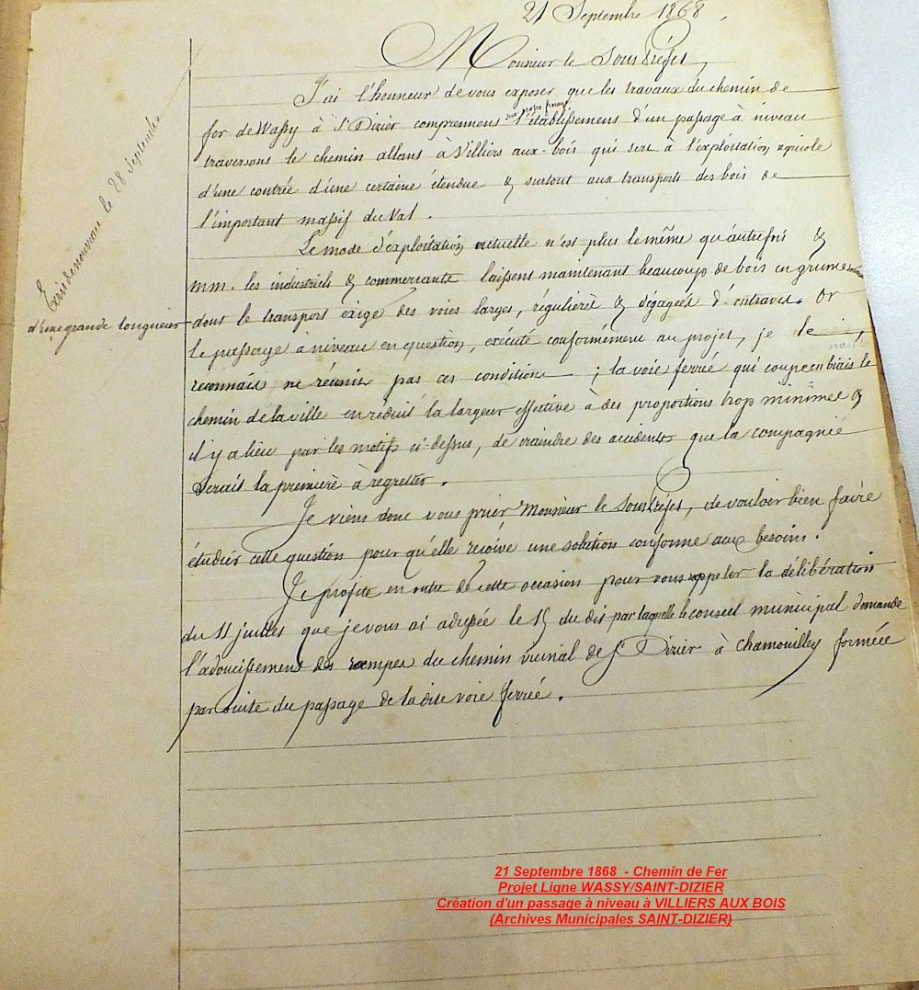 21 Septembre 1868.
Monsieur le Sous Préfet,
J'ai l'honneur de vous exposer que les travaux du chemin de
fer de Wassy à St Dizier comprennent l'établissement d'un passage à niveau
traversant le chemin allant à Villiers aux-bois qui sert à l'exploitation agricole
d'une contrée d'une certaine étendue & surtout aux transports des bois de
l'important massif du Val.
Le mode d'exploitation actuelle n'est plus le même qu'autrefois &
mm. les industriels & commerçants laissent maintenant beaucoup de bois en grumes
d'une grande longueur
dont le transport exige des voies larges, régulières & dégagées d'entraves. Or
le passage à niveau en question, exécuté conformément au projet, je le
reconnais ne réunit pas ces conditions ; la voie ferrée qui coupe en biais le
chemin de la ville en réduit la largeur effective à des proportions trop minimes &
il y a lieu par les motifs ci-dessus, de craindre des accidents que la compagnie
serait la première à regretter.
Je viens donc vous prier Monsieur le Sous Préfet, de vouloir bien faire
étudier cette question pour qu'elle reçoive une solution conforme aux besoins.
Je profite en outre de cette occasion pour vous rappeler la délibération
du 11 juillet que je vous ai adressée le 15 du dit par laquelle le conseil municipal demande
l'adoucissement des rampes du chemin vicinal de St Dizier à Chamouilley formées
par suite du passage de la dite voie ferrée.
28 Septembre
21 Septembre 1868 - Chemin de Fer
Projet Ligne WASSY/SAINT-DIZIER
Création d'un passage à niveau à VILLIERS AUX BOIS
(Archives Municipales SAINT-DIZIER)